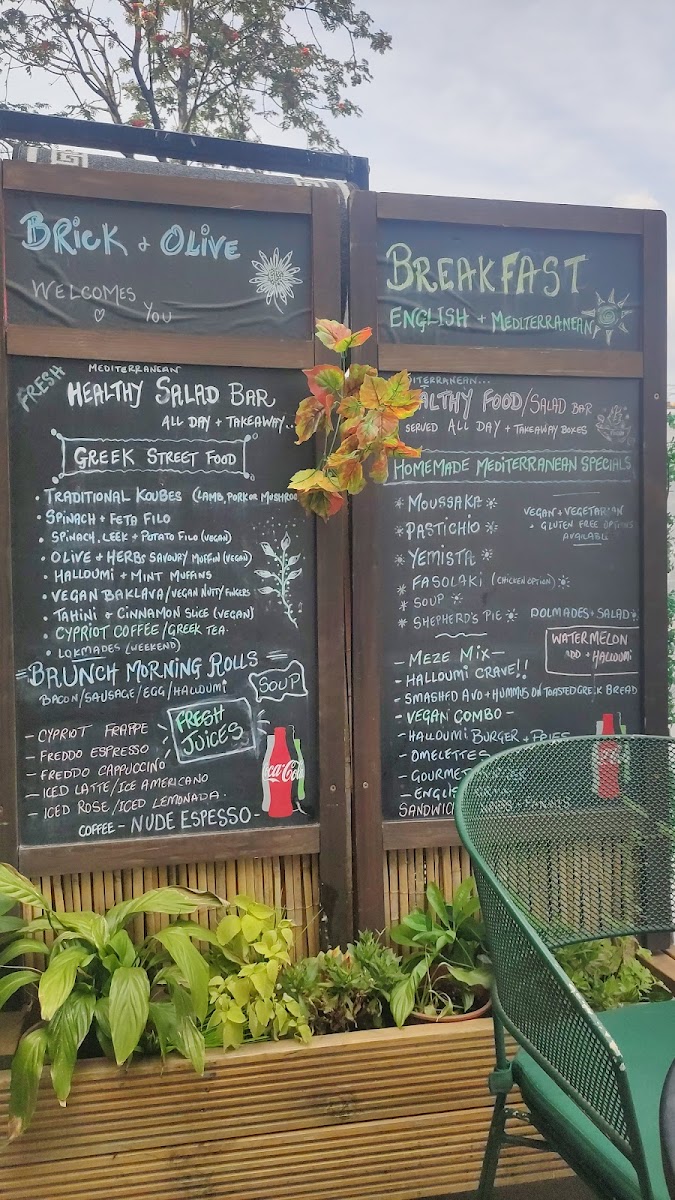 BRicK + OLiVE
WELCOMES
You
FRESH
MEDITERRANEAN
HEALTHY SALAD BAR
ALL DAY + TAKEAWAY...
GREEK STREET FOOD
• TRADITIONAL KOUBES (LAMB, PORK OR MUSHROO
• SPINACH + FETA FILO
• SPINACH, LEEK + POTATO FILO (VEGAN)
• OLIVE + HERBS SAVOURY MUFFIN (VEGAN)
• HALLOUMI + MINT MUFFANS
• VEGAN BAKLAVA / VEGAN NUTTY FINGERS
• TAHINI & CINNAMON SLICE (VEGAN)
• CYPRIOT COFFEE / GREEK TEA.
• LOKMADES (WEEKEND)
=BRUNCH MORNING ROLLS=
BACON/SAUSAGE/EGG/HALLOUMI
SOUP
- CYPRIOT FRAPPE
- FREDDO ESPRESSO
- FREDDO CAPPUCCINO
- ICED LATTE/ICE AMERICANO
- ICED ROSE/ICED LEMONADA.
FRESH
JUICES
Coca-Cola
COFFEE - NUDE ESPESSO -
BREAKFAST
ENGLISH + MEDITERRANEAN
ITERRANEAN...
ALTHY FOOD/SALAD BAR
SERVED ALL DAY + TAKEAWAY BOXES
HOMEMADE MEDITERRANEAN SPECIALS
* MOUSSAKA *
* PASTICHIO *
* YEMISTA *
* FASOLAKI (CHICKEN OPTION) *
* SOUP *
* SHEPHERD'S PIE *
VEGAN + VEGETARIAN
+ GLUTEN FREE OPTIONS
AVAILABLE
DOLMADES + SALAD
WATERMELON
ADD + HALLOUMI
- MEZE MIX -
- HALLOUMI CRAVE!!
- SMASHED AVO + HUMMUS ON TOASTED GREEK BREAD
- VEGAN COMBO -
- HALLOUMI BURGER + FRIES
- OMELETTES
- GOURMET
- ENGLIS
SANDWIC